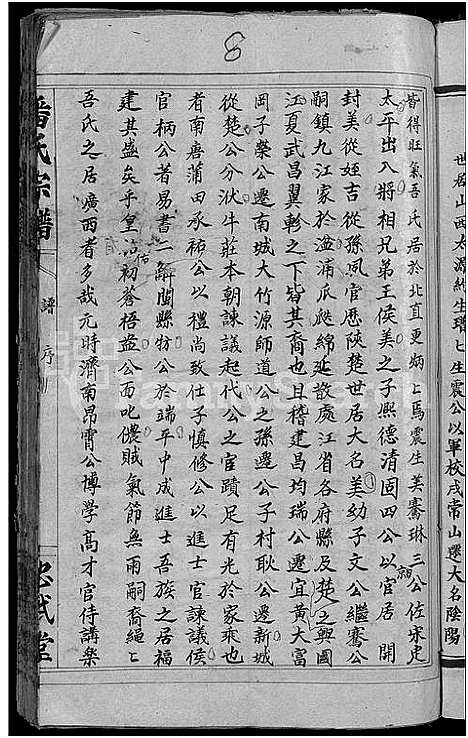 8
世居山西太源約生瓊瓊生震公以軍校戍常山遷大名陰陽
皆得旺氣吾氏居於北宜更炳炳焉震生美騫琳三公佐宋定
太平出入將相兄弟王侯美之子熙德清固四公以官居開
封美從姪吉從孫夙官歷陝楚世居大名美幼子文公繼騫公
嗣鎮九江家於湓浦瓜瓞綿延散處江省各府縣及楚之興國
江夏武昌翼軫之下皆其裔也且稽建昌均瑞公遷宜黃大富
岡子榮公遷南城大竹源師道公之孫邊公子村耿公遷新城
從楚公分沠牛莊本朝諫議起代公之官蹟足有光於家乘也
者南唐蒲田承祐公以禮尚致仕子慎修公以進士官諫議侯
官柄公著易書二解閩縣枋公於瑞平中成進士吾族之居福
建其盛矣乎皇祐初蒼梧盎公面叱儂賊氣節無兩嗣裔繩繩
吾氏之居廣西者多哉元時濟南昂霄公博學高才官侍講榮
潘氏宗譜
譜序
忠武堂
FamilySearch